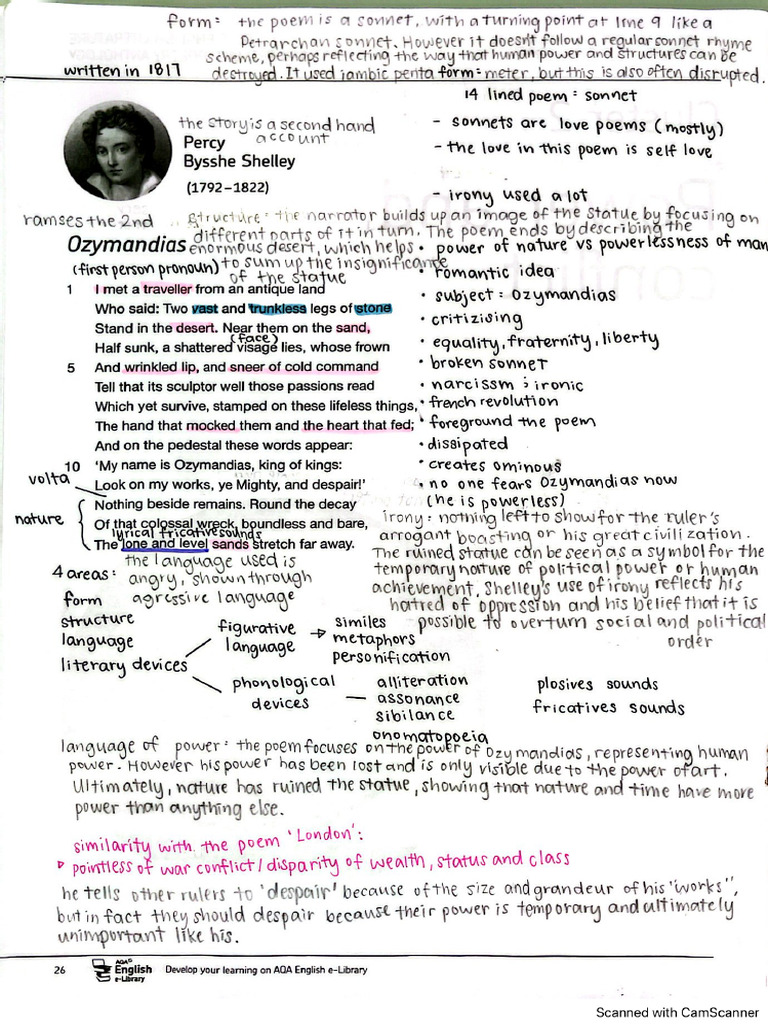 form: the poem is a sonnet, with a turning point at line 9 like a
Petrarchan sonnet. However it doesn't follow a regular sonnet rhyme
scheme, perhaps reflecting the way that human power and structures can be
destroyed. It used iambic penta form: meter, but this is also often disrupted.
written in 1817
14 lined poem = sonnet
- sonnets are love poems (mostly)
- the love in this poem is self love
- irony used a lot
the story is a second hand
account
Percy
Bysshe Shelley
(1792–1822)
ramses the 2nd
structure: the narrator builds up an image of the statue by focusing on
different parts of it in turn. The poem ends by describing the
enormous desert, which helps
to sum up the insignificance
of the statue
Ozymandias
(first person pronoun)
1 I met a traveller from an antique land
Who said: Two vast and trunkless legs of stone
Stand in the desert. Near them on the sand,
(face)
Half sunk, a shattered visage lies, whose frown
5 And wrinkled lip, and sneer of cold command
Tell that its sculptor well those passions read
Which yet survive, stamped on these lifeless things,
The hand that mocked them and the heart that fed;
And on the pedestal these words appear:
10 'My name is Ozymandias, king of kings:
Look on my works, ye Mighty, and despair!'
volta
Nothing beside remains. Round the decay
nature
Of that colossal wreck, boundless and bare,
lyrical fricative sounds
The lone and level sands stretch far away.
• power of nature vs powerlessness of man
• romantic idea
• subject: ozymandias
• critizising
• equality, fraternity, liberty
• broken sonnet
• narcissm ; ironic
• french revolution
• foreground the poem
• dissipated
• creates ominous
• no one fears Ozymandias now
(he is powerless)
irony: nothing left to show for the ruler's
arrogant boasting or his great civilization.
The ruined statue can be seen as a symbol for the
temporary nature of political power or human
achievement. Shelley's use of irony reflects his
hatred of oppression and his belief that it is
possible to overturn social and political
order
the language used is
angry, shown through
agressive language
4 areas:
form
structure
language
literary devices
figurative
language
similes
metaphors
personification
phonological
devices
alliteration
assonance
sibilance
onomatopoeia
plosives sounds
fricatives sounds
language of power: the poem focuses on the power of Ozymandias, representing human
power. However his power has been lost and is only visible due to the power of art.
Ultimately, nature has ruined the statue, showing that nature and time have more
power than anything else.
similarity with the poem 'London':
pointless of war conflict/disparity of wealth, status and class
he tells other rulers to 'despair' because of the size and grandeur of his "works",
but in fact they should despair because their power is temporary and ultimately
unimportant like his.
26 AQA English e-Library Develop your learning on AQA English e-Library
Scanned with CamScanner